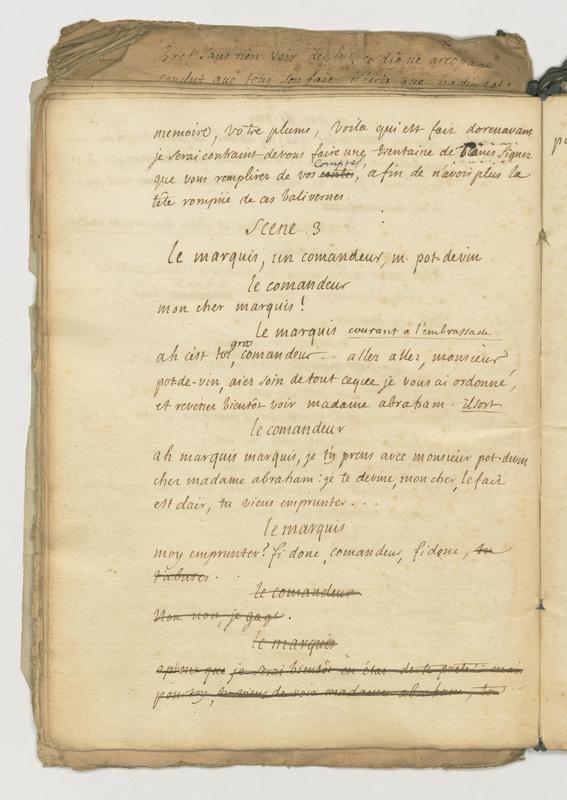 Bref sans rien voir de plus, ce digne
conclut que tout son fait n'etoit que badinage.
memoire, vôtre plume, voila qui est fait dorenavant
je serai contraint de vous faire une trentaine de blancs signez
comptes
que vous remplirez de vos contes, afin de n'avoir plus la
tête rompüe de ces balivernes.
Scene. 3
le marquis, un comandeur, m. pot-devin
le comandeur
mon cher marquis!
le marquis courant a l'embrassade
gros
ah c'est toy, comandeur... allez allez, monsieur
pot-de-vin, aiez soin de tout ceque je vous ai ordonné,
et revenez bientôt voir madame abraham. il sort
le comandeur
ah marquis marquis, je t'y prens avec monsieur pot-devin
chez madame abraham: je te devine, mon cher, le fait
est clair, tu viens emprunter...
le marquis
moy emprunter? fi donc, comandeur, fi donc, tu
t'abuses.
le comandeur
Non non, je gage.
le marquis
que je serai bientôt en état de te mais
pour toy, tu viens de voir madame abraham, tu